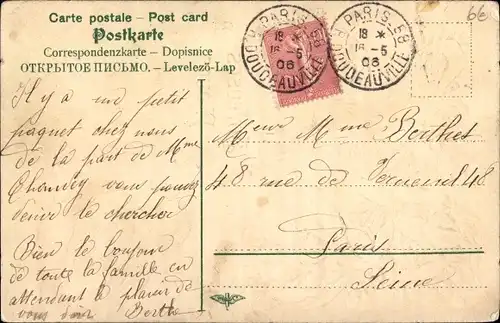 Carte postale – Post card
Postkarte
Correspondenzkarte – Dopisnice
ОТКРЫТОЕ ПИСЬМО. – Levelező-Lap
66
PARIS
18 *
16 – 5
06
R. DOUDEAUVILLE
PARIS
18 *
16 – 5
06
R. DOUDEAUVILLE
Il y a un petit
paquet chez nous
de la part de Mme
vous pouvez
venir le chercher
Bien le bonjour
de toute la famille en
attendant le plaisir de
vous
Berthe
Mme Berthet
48 rue de 48
Paris
Seine